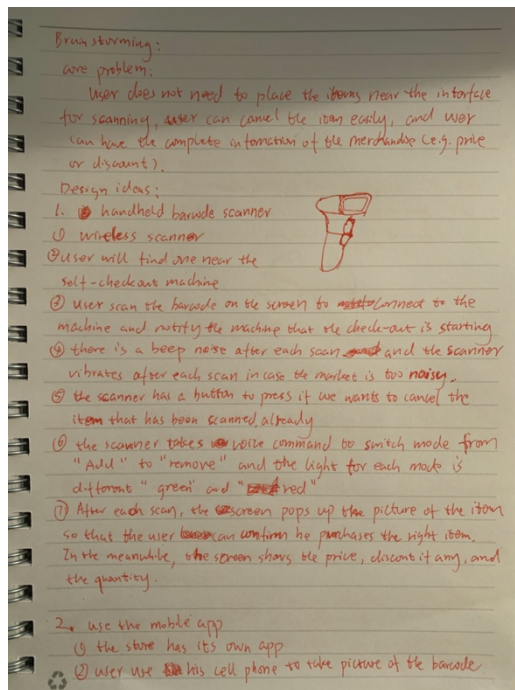 Brainstorming:
core problem:
User does not need to place the items near the interface
for scanning, user can cancel the item easily, and user
can have the complete infomation of the merchandise (e.g. price
or discount).
Design ideas:
1. handheld barcode scanner
① wireless scanner
② user will find one near the
self-checkout machine
③ user scan the barcode on the screen to connect to the
machine and notify the machine that the check-out is starting
④ there is a beep noise after each scan and the scanner
vibrates after each scan in case the market is too noisy.
⑤ the scanner has a button to press if we wants to cancel the
item that has been scanned already
⑥ the scanner takes voice command to switch mode from
"Add" to "remove" and the light for each mode is
different "green" and "red"
⑦ After each scan, the screen pops up the picture of the item
so that the user can confirm he purchases the right item.
In the meanwhile, the screen shows the price, discont if any, and
the quantity.
2. use the mobile app
① the store has its own app
② user use his cell phone to take picture of the barcode